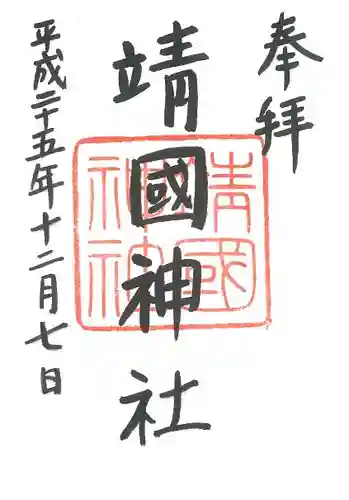 奉拝
靖國神社
平成二十五年十二月七日
靖國
神社